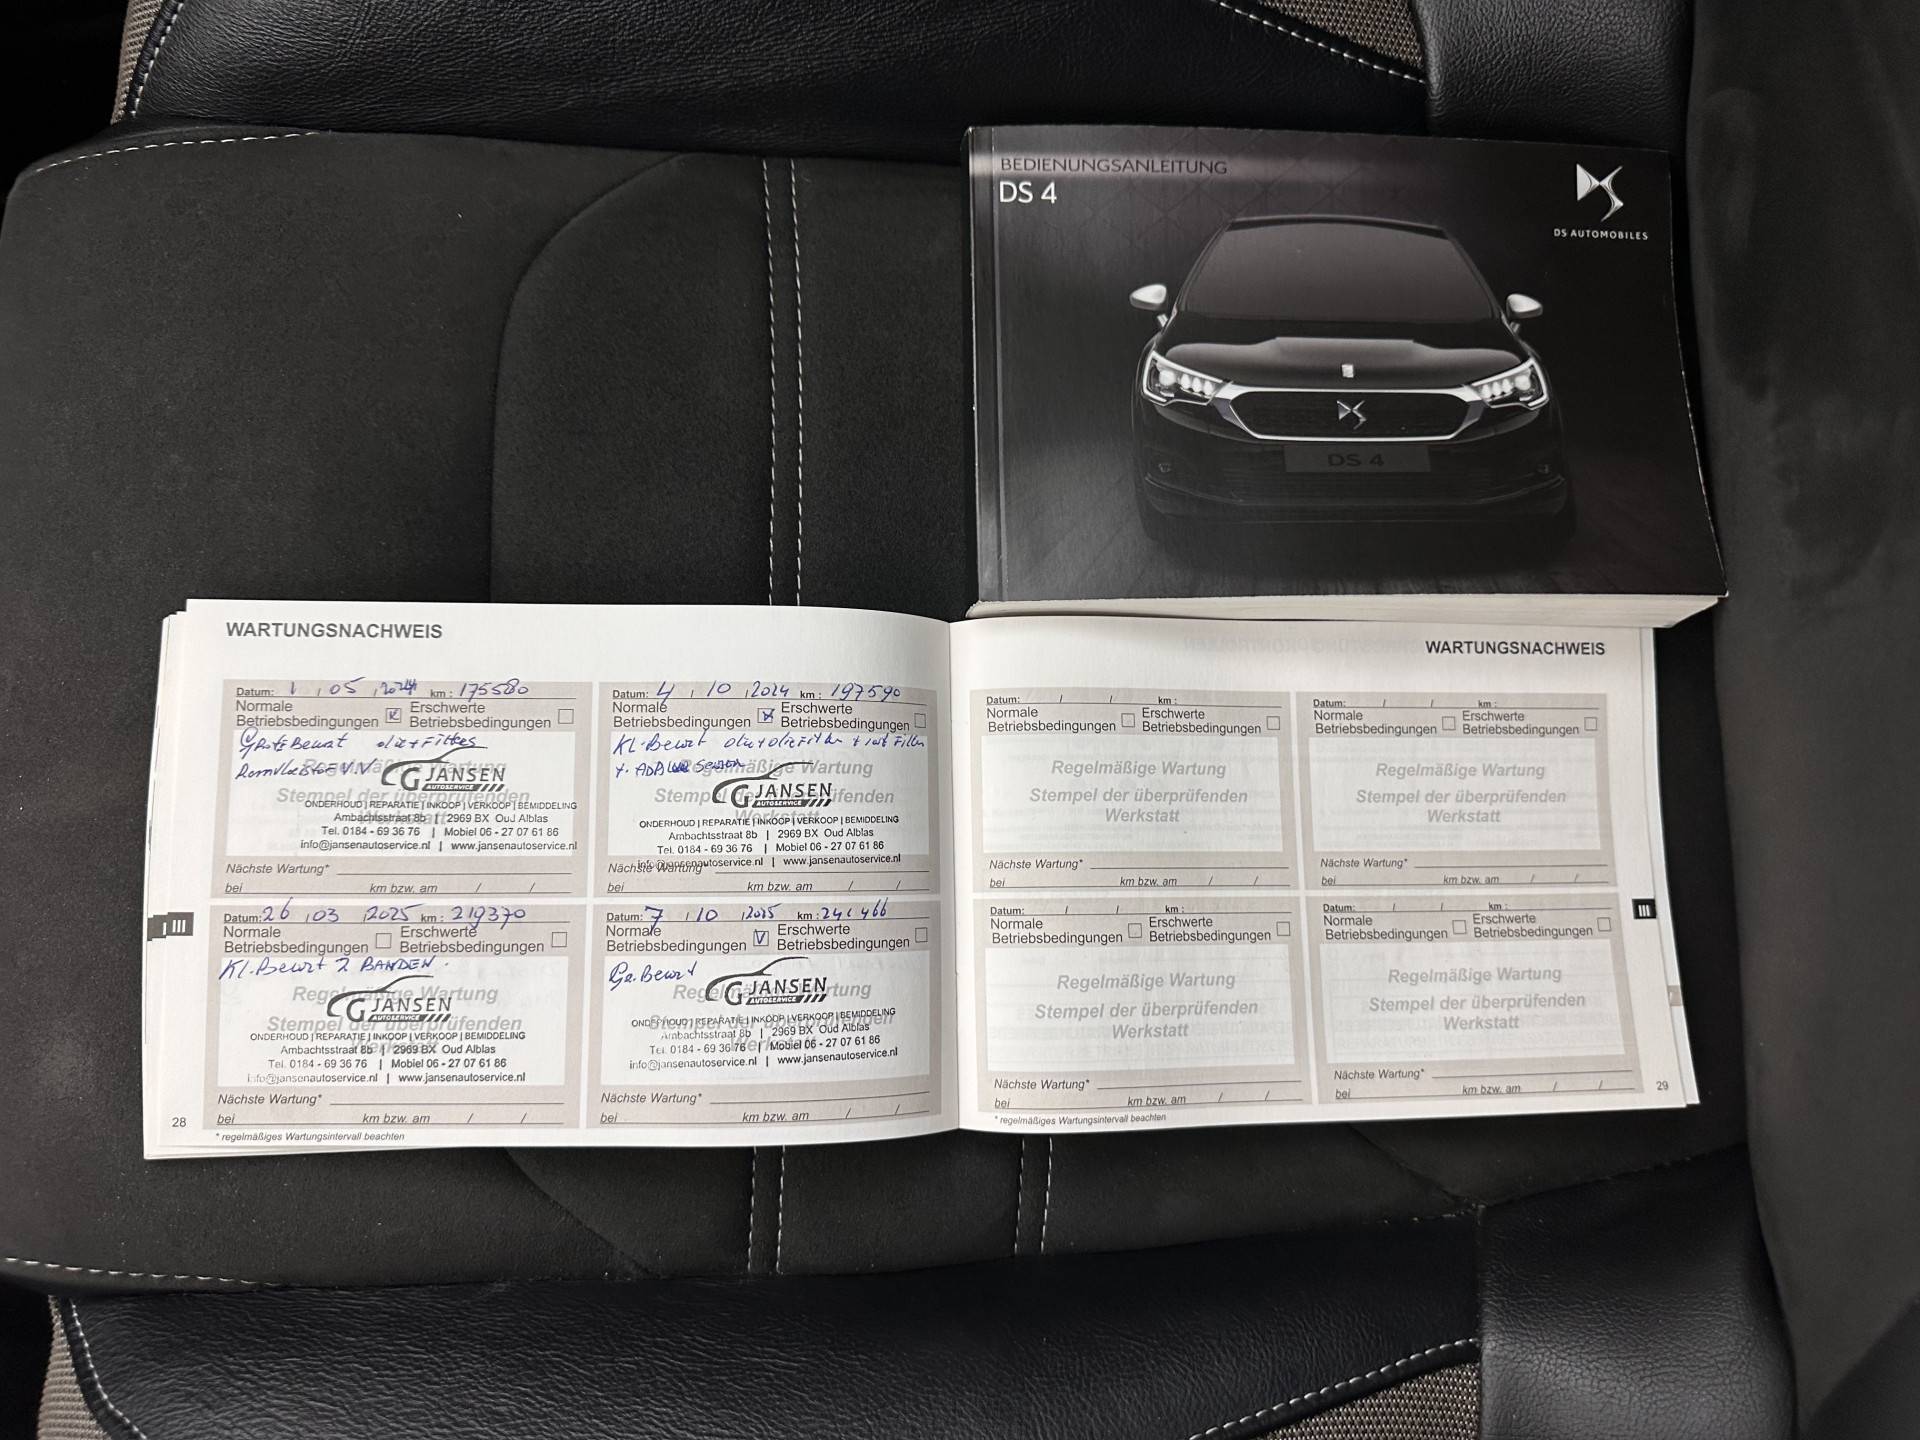 BEDIENUNGSANLEITUNG
DS 4
DS AUTOMOBILES
DS 4
WARTUNGSNACHWEIS
Datum: 1 / 05 / 2024 km : 175580
Normale Betriebsbedingungen Erschwerte Betriebsbedingungen
Grote Beurt olie + Filters
Remvloeistof V.V
Regelmäßige Wartung
Stempel der überprüfenden
Werkstatt
G JANSEN
AUTOSERVICE
ONDERHOUD | REPARATIE | INKOOP | VERKOOP | BEMIDDELING
Ambachtsstraat 8b | 2969 BX Oud Alblas
Tel. 0184 - 69 36 76 | Mobiel 06 - 27 07 61 86
info@jansenautoservice.nl | www.jansenautoservice.nl
Nächste Wartung*
bei km bzw. am / /
Datum: 4 / 10 / 2024 km : 197590
Normale Betriebsbedingungen Erschwerte Betriebsbedingungen
Kl. Beurt olie + oliefilter +
+ ADBlue
Regelmäßige Wartung
Stempel der überprüfenden
Werkstatt
G JANSEN
AUTOSERVICE
ONDERHOUD | REPARATIE | INKOOP | VERKOOP | BEMIDDELING
Ambachtsstraat 8b | 2969 BX Oud Alblas
Tel. 0184 - 69 36 76 | Mobiel 06 - 27 07 61 86
info@jansenautoservice.nl | www.jansenautoservice.nl
Nächste Wartung*
bei km bzw. am / /
Datum: 26 / 03 / 2025 km : 219370
Normale Betriebsbedingungen Erschwerte Betriebsbedingungen
Kl. Beurt 2 BANDEN.
Regelmäßige Wartung
Stempel der überprüfenden
Werkstatt
G JANSEN
AUTOSERVICE
ONDERHOUD | REPARATIE | INKOOP | VERKOOP | BEMIDDELING
Ambachtsstraat 8b | 2969 BX Oud Alblas
Tel. 0184 - 69 36 76 | Mobiel 06 - 27 07 61 86
info@jansenautoservice.nl | www.jansenautoservice.nl
Nächste Wartung*
bei km bzw. am / /
Datum: 7 / 10 / 2025 km : 241466
Normale Betriebsbedingungen Erschwerte Betriebsbedingungen
Gr. Beurt
Regelmäßige Wartung
Stempel der überprüfenden
Werkstatt
G JANSEN
AUTOSERVICE
ONDERHOUD | REPARATIE | INKOOP | VERKOOP | BEMIDDELING
Ambachtsstraat 8b | 2969 BX Oud Alblas
Tel. 0184 - 69 36 76 | Mobiel 06 - 27 07 61 86
info@jansenautoservice.nl | www.jansenautoservice.nl
Nächste Wartung*
bei km bzw. am / /
III
28
* regelmäßiges Wartungsintervall beachten
WARTUNGSNACHWEIS
Datum: / / km :
Normale Betriebsbedingungen Erschwerte Betriebsbedingungen
Regelmäßige Wartung
Stempel der überprüfenden
Werkstatt
Nächste Wartung*
bei km bzw. am / /
Datum: / / km :
Normale Betriebsbedingungen Erschwerte Betriebsbedingungen
Regelmäßige Wartung
Stempel der überprüfenden
Werkstatt
Nächste Wartung*
bei km bzw. am / /
Datum: / / km :
Normale Betriebsbedingungen Erschwerte Betriebsbedingungen
Regelmäßige Wartung
Stempel der überprüfenden
Werkstatt
Nächste Wartung*
bei km bzw. am / /
Datum: / / km :
Normale Betriebsbedingungen Erschwerte Betriebsbedingungen
Regelmäßige Wartung
Stempel der überprüfenden
Werkstatt
Nächste Wartung*
bei km bzw. am / /
III
29
* regelmäßiges Wartungsintervall beachten